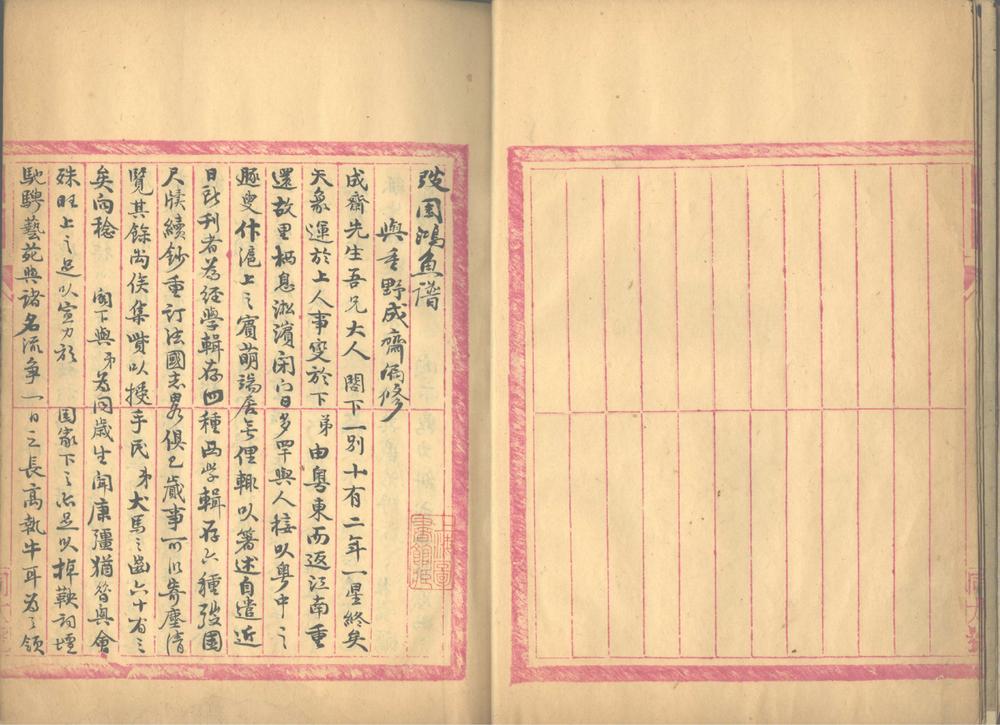 弢園鴻魚譜
與重野成齋編修
成齋先生吾兄大人 閣下一別十有二年一星終矣
天象運於上人事變於下弟由粵東而返江南重
還故里栖息淞濱閉門日多罕與人接以粵中之
賸叟作滬上之賓萌端居無俚輒以箸述自遣近
日所刊者為經學輯存四種西學輯存六種弢園
尺牘續鈔重訂法國志畧俱已蕆事可以寄塵清
覽其餘尚俟集貲以授手民弟犬馬之齒六十有三
矣向稔 閣下與弟為同歲生聞康彊猶昔興會
殊旺上之足以宣力於 國家下之亦足以掉鞅詞壇
馳騁藝苑與諸名流爭一日之長高執牛耳為之領
上海圖
書館藏